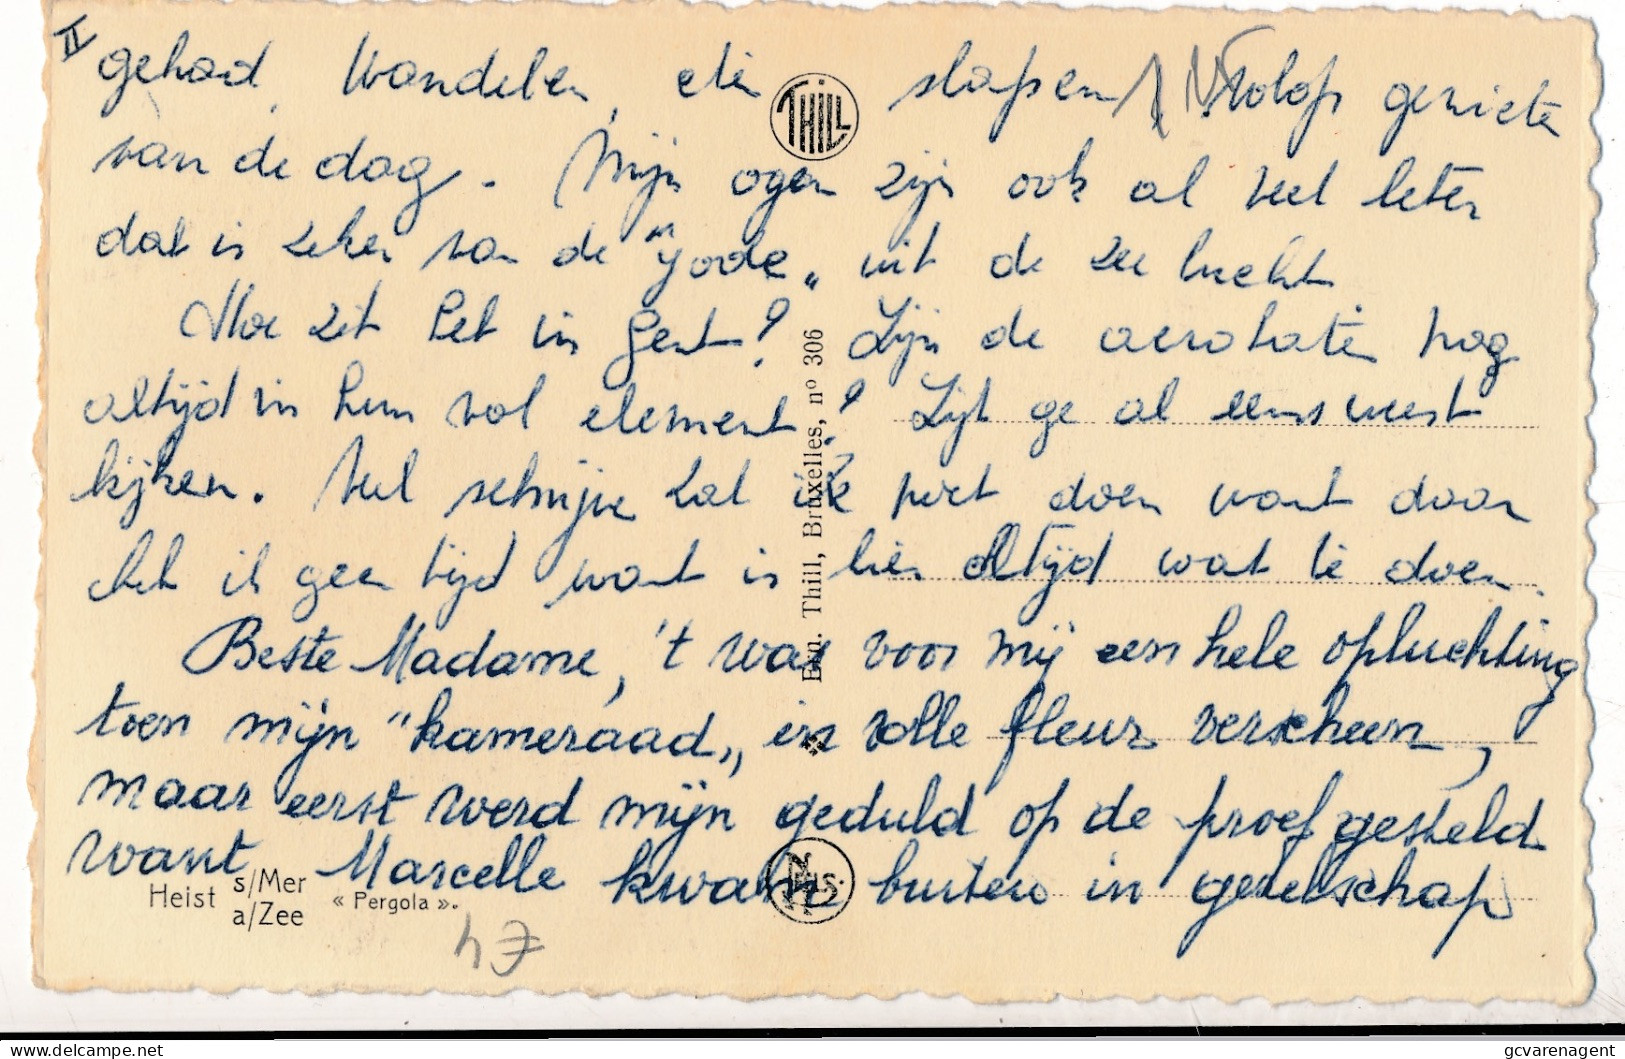 II
gehad, Wandelen, eten slapen, Volop genieten
van de dag. Mijn ogen zijn ook al veel beter
dat is zeker van de "jode" uit de zee lucht
Hoe zit het in Gent? Zijn de acrobaten nog
altijd in hun vol element? Zijt ge al eens weest
kijken. Veel schrijve zal ik niet doen want daar
heb ik geen tijd want is hier altijd wat te doen.
Beste Madame, 't was voor mij een hele opluchting
toen mijn "kameraad" in volle fleur verscheen,
maar eerst werd mijn geduld op de proef gesteld
want Marcelle kwam buiten in gezelschap
THILL
Ern. Thill, Bruxelles, nº 306
NELS
Heist s/Mer
a/Zee
« Pergola ».
© gcvarenagent
www.delcampe.net